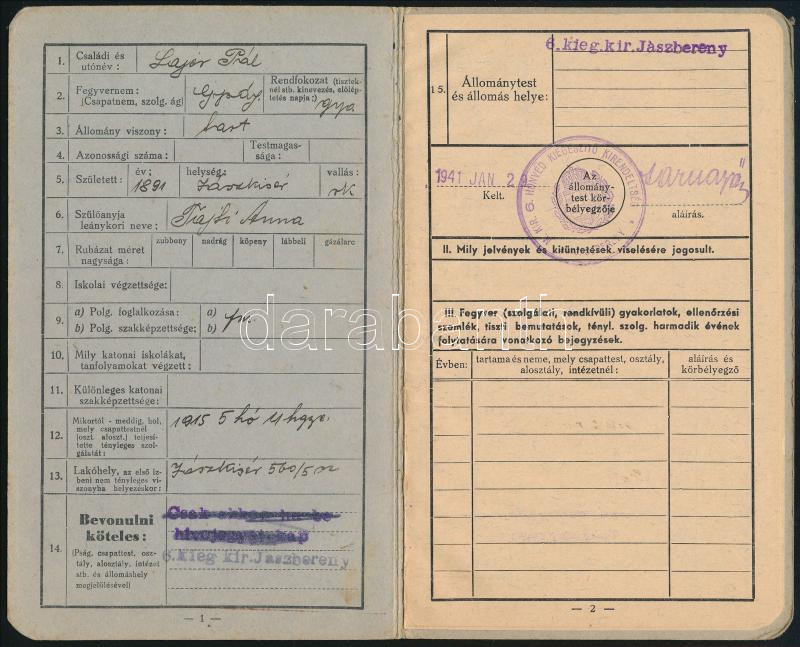 1. Családi és utónév: Lajér Pál
2. Fegyvernem: (Csapatnem, szolg. ág)
Rendfokozat (tisztek-
nél stb. kinevezés, előlép-
tetés napja:) gya
3. Állomány viszony:
4. Azonosségi száma:
Testmagas-
sága:
5. Született: év: 1891 helység: Jászkisér vallás: rk
6. Szülőanyja leánykori neve: Fajti Anna
7. Ruházat méret nagysága: zubbony nadrág köpeny lábbeli gázálarc
8. Iskolai végzettsége:
9. a) Polg. foglalkozása: a)
b) Polg. szakképzettsége: b)
10. Mily katonai iskolákat, tanfolyamokat végzett:
11. Különleges katonai szakképzettsége:
12. Mikortól - meddig, hol, mely csapattestnél (oszt. aloszt.) teljesí-
tette tényleges szol-
gálatát: 1915 5 hó
13. Lakóhely, az első íz-
beni nem tényleges vi-
szonyba helyezéskor: Jászkisér 560/5
14. Bevonulni köteles:
(Pság, csapattest, osz-
tály, alosztály, intézet
stb. és állomáshely
megjelölésével)
Csak akkor ha be
hivójegyet kap
6. kieg kir. Jászberény
— 1 —
6. kieg. kir. Jászberény
15. Állománytest és állomás helye:
1941 JAN 2
Kelt.
M. KIR. 6. HONVÉD KIEGÉSZÍTŐ KIRENDELTSÉG
Az
állomány-
test kör-
bélyegzője
aláírás.
II. Mily jelvények és kitüntetések viselésére jogosult.
III. Fegyver (szolgálati, rendkívüli) gyakorlatok, ellenőrzési
szemlék, tiszti bemutatások, tényl. szolg. harmadik évének
folytatására vonatkozó bejegyzések.
Évben: tartama és neme, mely csapattest, osztály, aláírás és
alosztály, intézetnél: körbélyegző
— 2 —
darabanth